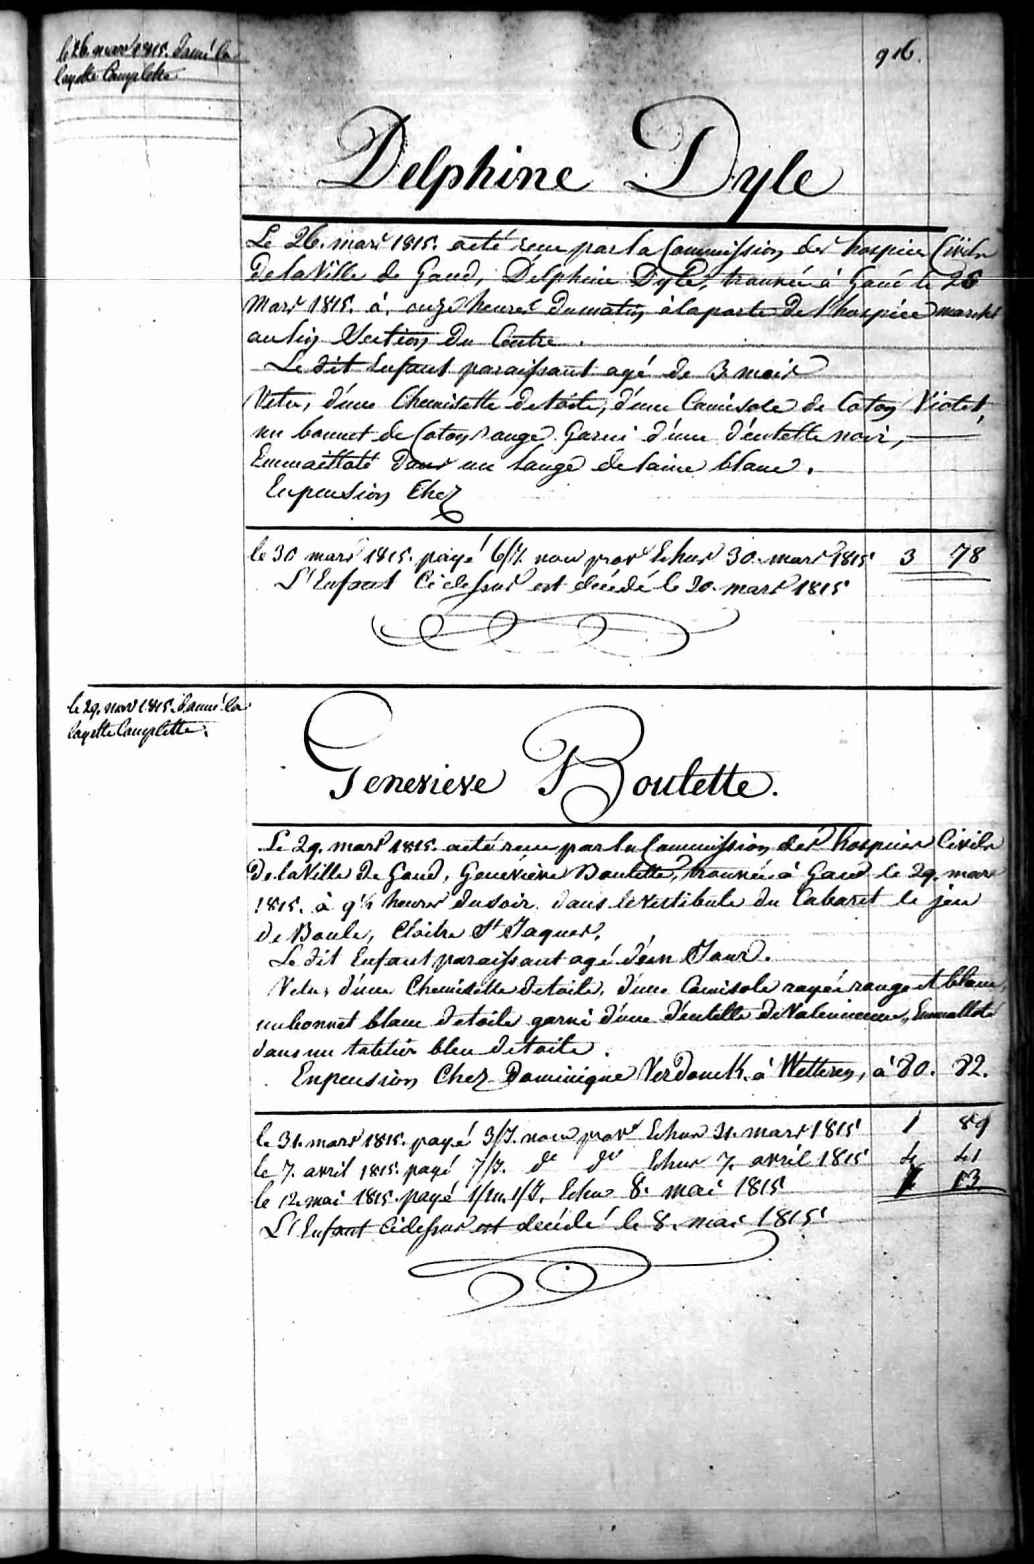 916.
le 26. mars 1815. donné la
layette Complette
Delphine Dyle
Le 26. mars 1815. a été recue par la Commission des hospices Civils
de la Ville de Gand, Delphine Dyle, trouvée à Gand le 26
Mars 1815. à onze heures du matin à la porte de l'hospice marché
au lin Section du Centre.
Le dit Enfant paraissant agé de 3 mois
Vetu, d'une Chemisette de toile, d'une Camisole de Coton Violet,
un bonnet de Coton rouge garni d'une d'entelle noir,
Emmailloté dans un lange de laine blanc.
En pension Chez
le 30 mars 1815. payé 6/J. nour prov Echus 30. mars 1815 3 78
L'Enfant Cidessus est decédé le 30. mars 1815
le 29. mars 1815. donné la
layette Complette.
Genevieve Boulette.
Le 29. mars 1815. a été recue par la Commission des hospices Civils
de la Ville de Gand, Geneviève Boulette, trouvée à Gand le 29. mars
1815. à 9½ heures du soir dans le Vestibule du Cabaret le jeu
de Boule, Cloitre St Jaques.
Le dit Enfant paraissant agé d'un Jour.
Vetu, d'une Chemisette de toile, d'une Camisole rayée rouge et blanc,
un bonnet blanc de toile garni d'une d'entelle de Valencienne, Emmailloté
dans un tablier bleu de toile.
Enpension Chez Dominique Verdonck à Wetteren, à 80. 82.
le 31. mars 1815. payé 3/J. nour prov Echus 31. mars 1815 1 89
le 7. avril 1815. payé 7/J. do do Echus 7. avril 1815 4 41
le 12. mai 1815. payé 1/m. 1/J. Echus 8. mai 1815 13
L'Enfant Cidessus est decédé le 8. mai 1815